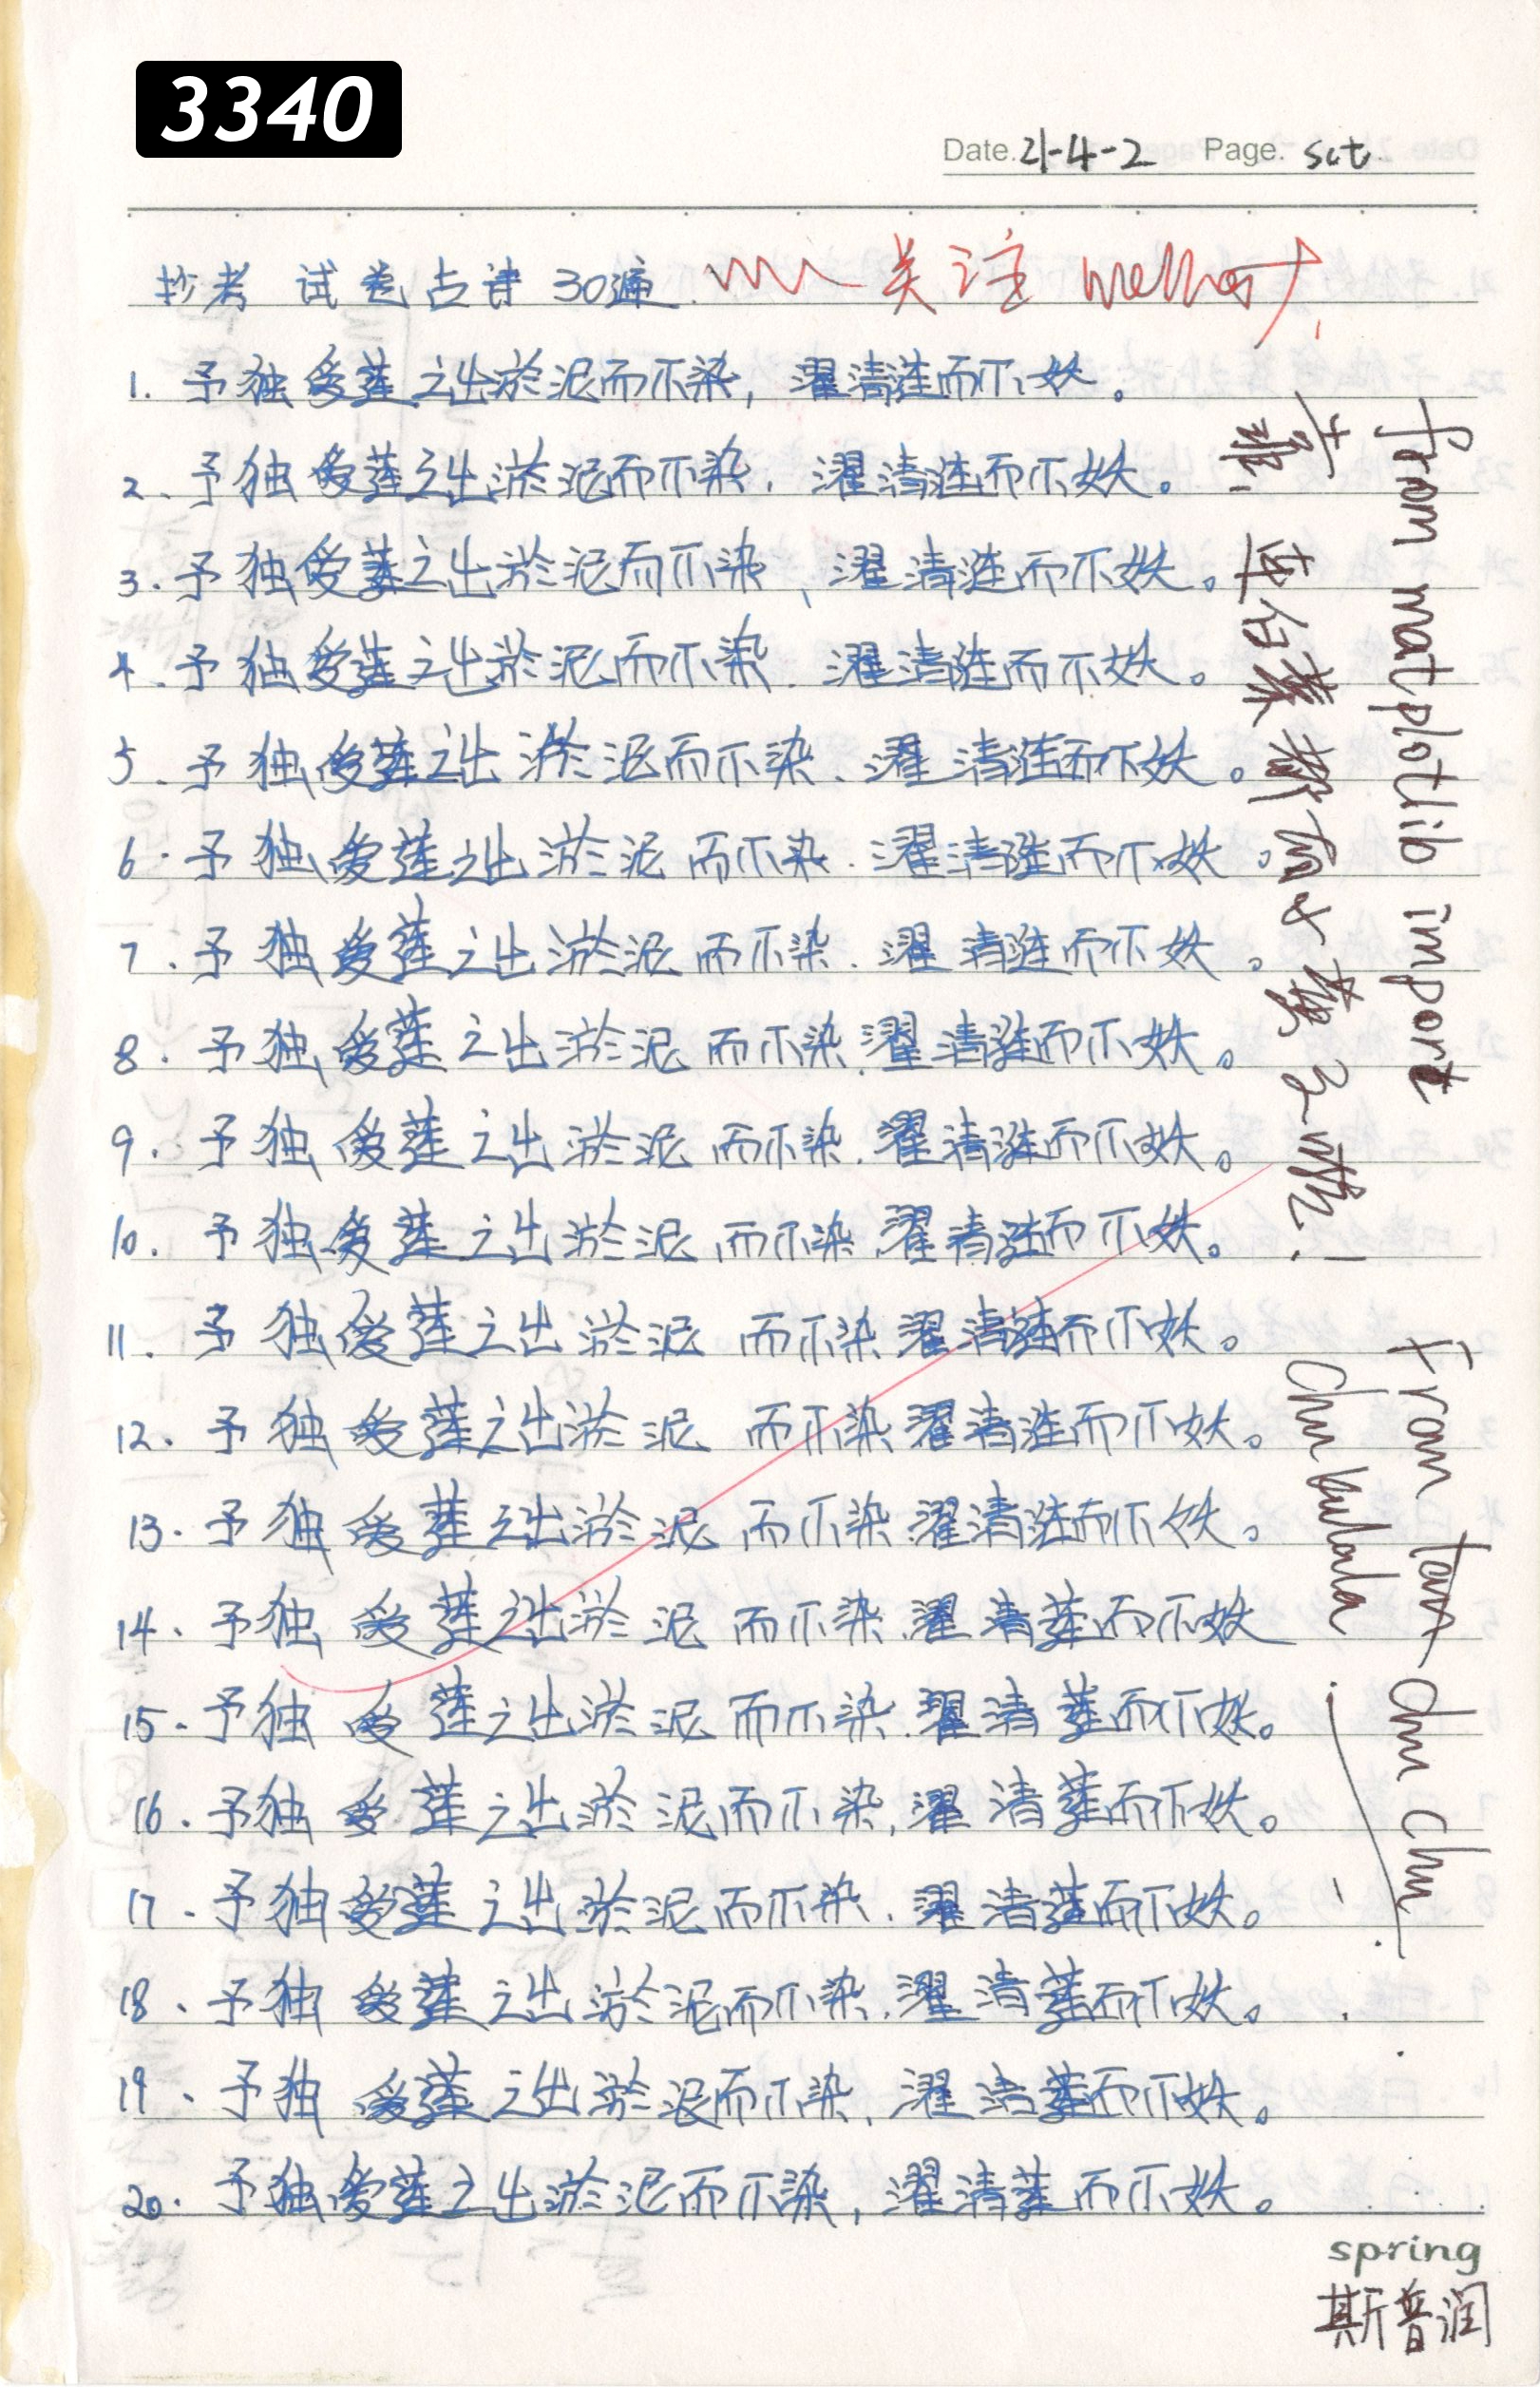 3340
Date. 21-4-2 Page. sct.
抄考 试卷古诗 30遍. 关注
1. 予独爱莲之出淤泥而不染, 濯清涟而不妖。
2. 予独爱莲之出淤泥而不染. 濯清涟而不妖。
3. 予独爱莲之出淤泥而不染、濯清涟而不妖。
4. 予独爱莲之出淤泥而不染. 濯清涟而不妖。
5. 予独爱莲之出淤泥而不染. 濯清涟而不妖。
6. 予独爱莲之出淤泥而不染. 濯清涟而不妖。
7. 予独爱莲之出淤泥而不染. 濯清涟而不妖。
8. 予独爱莲之出淤泥而不染. 濯清涟而不妖。
9. 予独爱莲之出淤泥而不染. 濯清涟而不妖。
10. 予独爱莲之出淤泥而不染. 濯清涟而不妖。
11. 予独爱莲之出淤泥而不染 濯清涟而不妖。
12. 予独爱莲之出淤泥而不染 濯清涟而不妖。
13. 予独爱莲之出淤泥而不染 濯清涟而不妖。
14. 予独爱莲之出淤泥而不染. 濯清莲而不妖
15. 予独爱莲之出淤泥而不染. 濯清莲而不妖。
16. 予独爱莲之出淤泥而不染, 濯清莲而不妖。
17. 予独爱莲之出淤泥而不染. 濯清莲而不妖。
18、予独爱莲之出淤泥而不染. 濯清莲而不妖。
19、予独爱莲之出淤泥而不染, 濯清莲而不妖。
20. 予独爱莲之出淤泥而不染, 濯清莲而不妖。
from matplotlib import
From Tan Chu Chu
Chu kulala
spring
斯普润